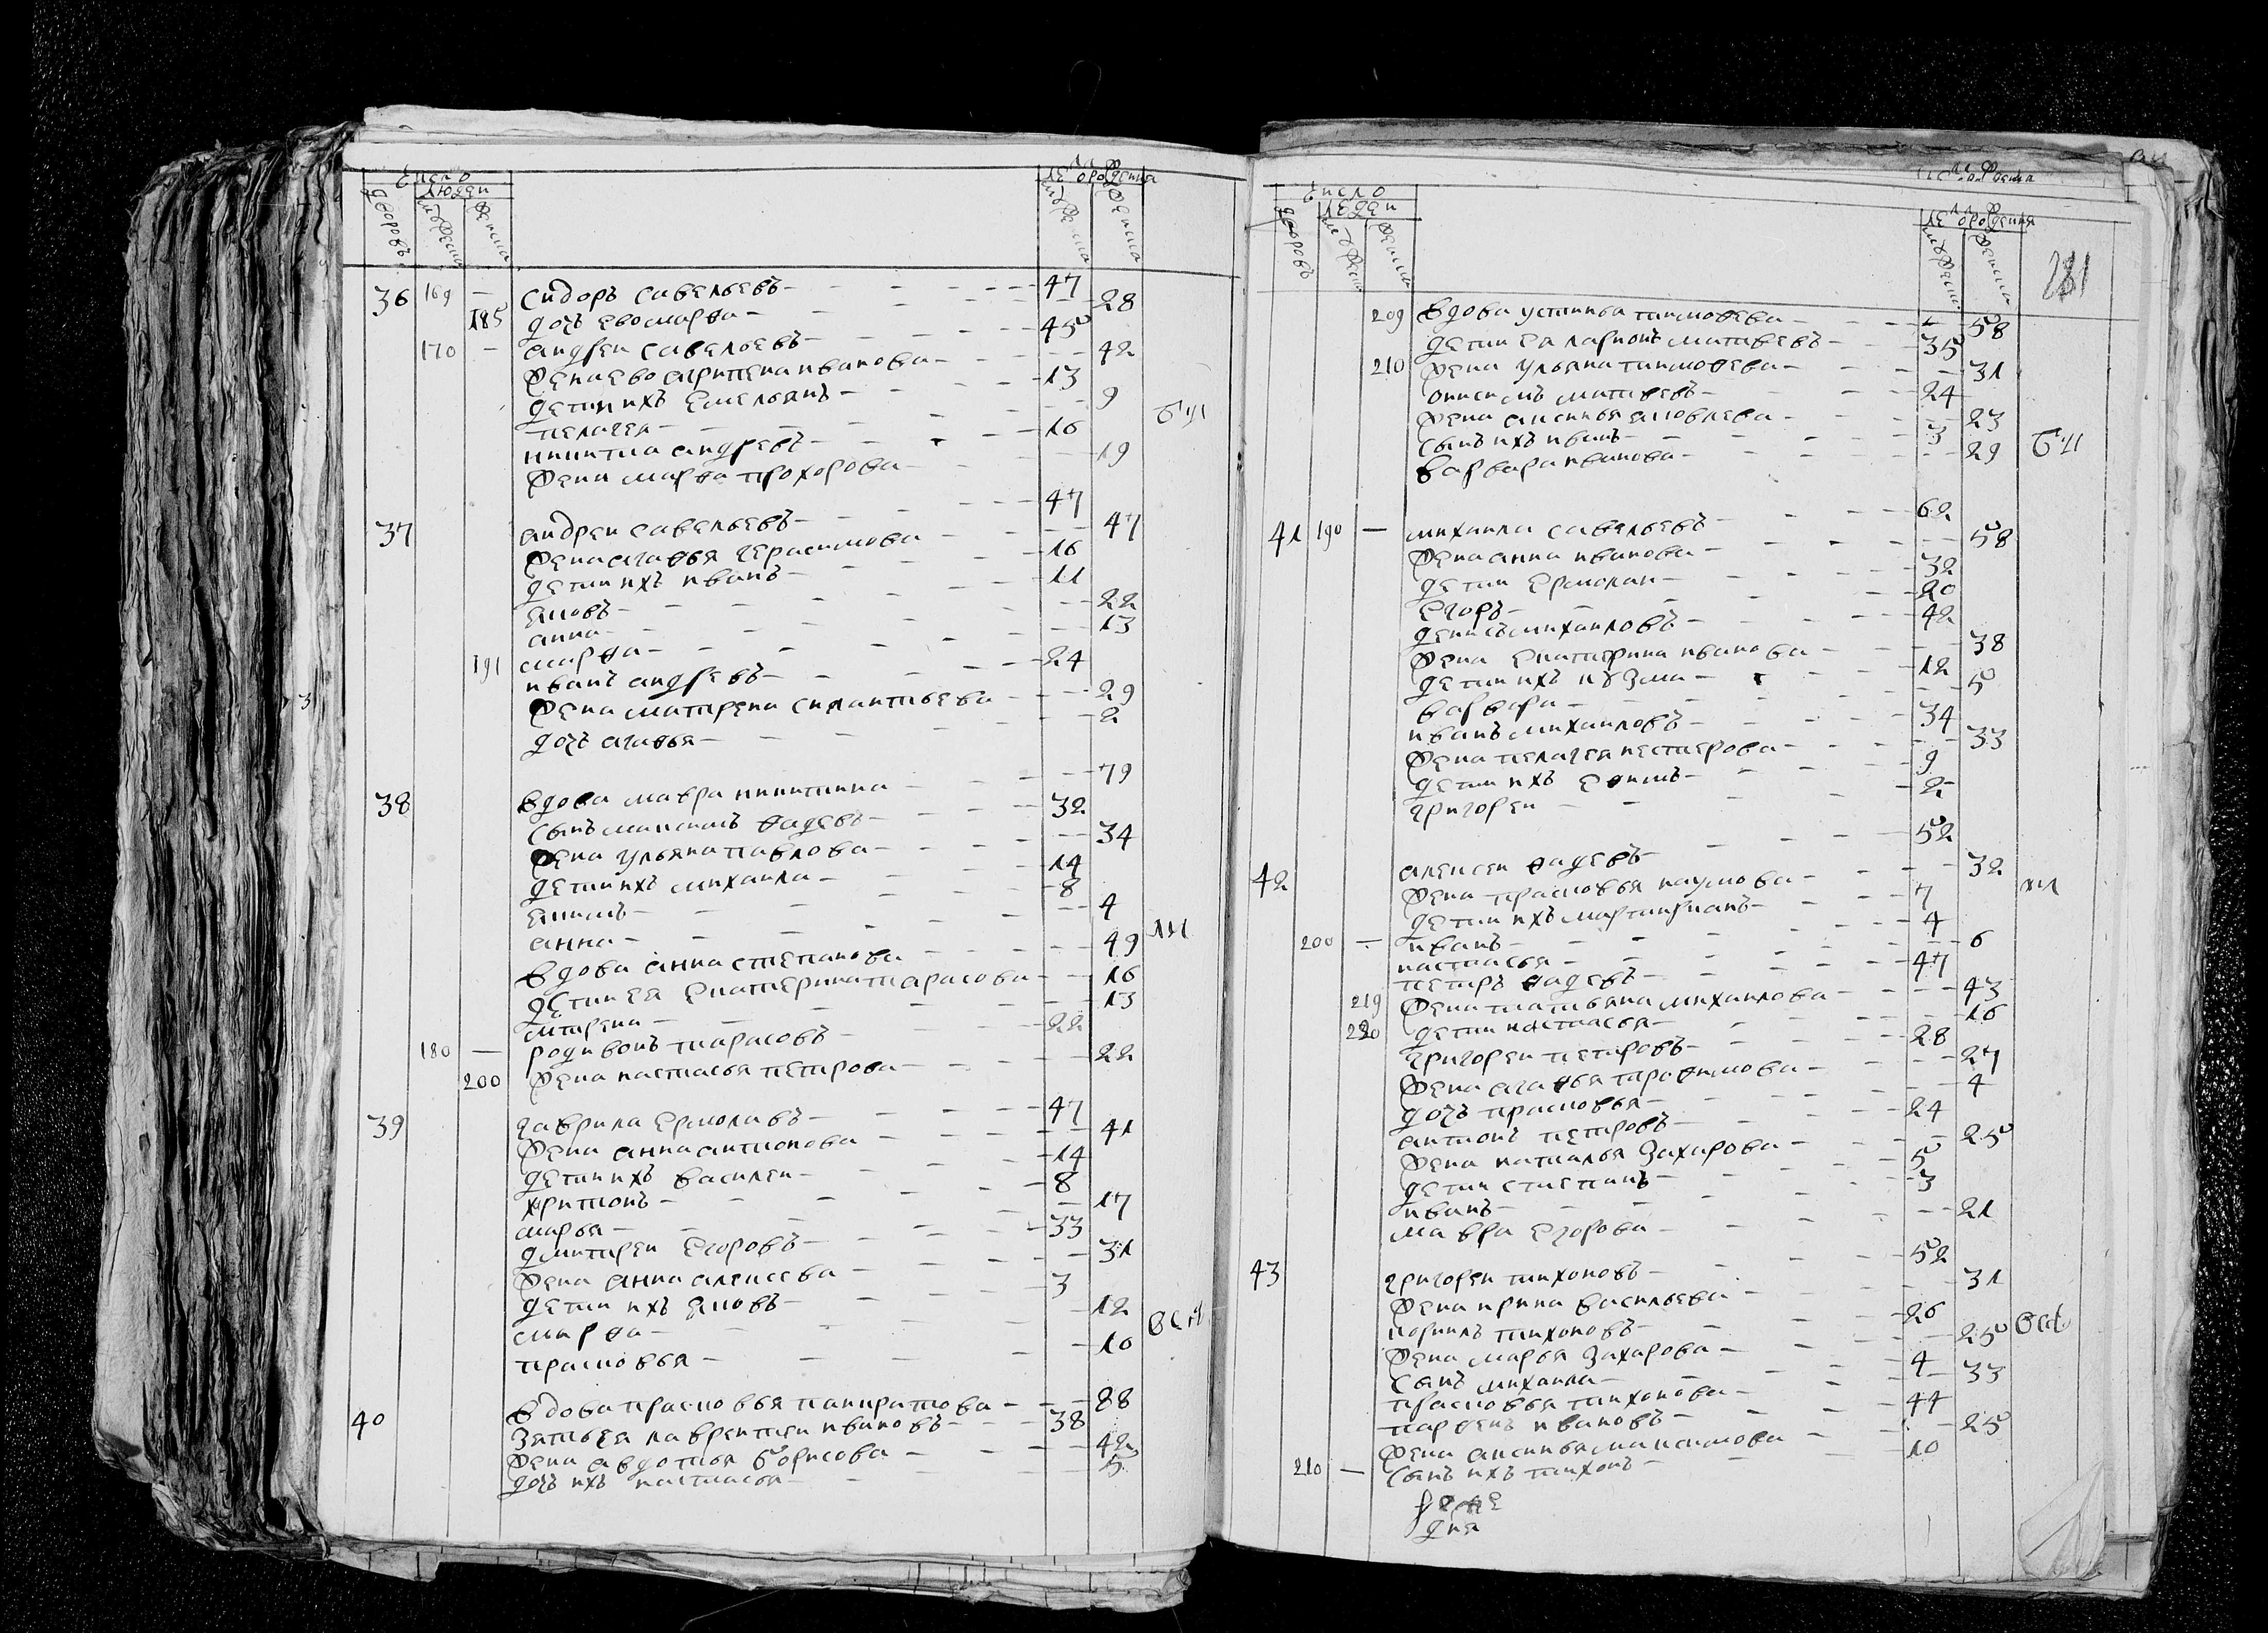 Число
Людеи
лѣ от рождения
дворовъ мужеска женска мужеска женска
36 169 — Сидоръ Савельевъ — 47
185 дочь ево марѳа — 28
170 — андреи Савельевъ — 45
жена ево агрипена иванова — 42
дети ихъ Емельянъ — 13
пелагея — 9
никита андревъ — 16
жена марѳа прохорова — 19
37 андреи савельевъ — 47
жена агаѳья герасимова — 47
дети ихъ иванъ — 16
яковъ — 11
анна — 22
191 марѳа — 13
иванъ андревъ — 24
жена матрена силантьева — 29
дочь агаѳья — 2
38 вдова мавра никитина — 79
сынъ максимъ ѳадевъ — 32
жена ульяна павлова — 34
дети ихъ михаила — 14
якимъ — 8
анна — 4
вдова анна степанова — 49
дети ея Екатерина тарасова — 16
мтрена — 13
180 — родивонъ тарасовъ — 22
200 жена настасья петрова — 22
39 гаврила Ермолавъ — 47
жена анна антонова — 41
дети ихъ василеи — 14
харитонъ — 8
марья — 17
дмитреи Егоровъ — 33
жена анна алексева — 31
дети ихъ яковъ — 3
марѳа — 12
прасковья — 10
40 вдова прасковья панкратова — 88
зять ея лаврентеи ивановъ — 38
жена авдотья борисова — 42
дочь ихъ настасья — 5
Число
Людеи
лѣ от рождения
дворовъ мужеска женска мужеска женска
281
209 вдова устинья тимоѳева — 58
дети ея ларионъ матвевъ — 35
210 жена ульяна тимоѳева — 31
онисимъ матвевъ — 24
жена аксинья яковлева — 23
сынъ ихъ иванъ — 3
варвара иванова — 29
41 190 — михаила савельевъ — 62
жена анна иванова — 58
дети Ермолаи — 32
Егоръ — 20
денисъ михаиловъ — 42
жена Екатерина иванова — 38
дети ихъ кузма — 12
варвара — 5
иванъ михаиловъ — 34
жена пелагея нестерова — 33
дети ихъ Еѳимъ — 9
григореи — 2
42 алексеи ѳадевъ — 52
жена прасковья наумова — 32
дети ихъ мартинианъ — 7
200 — иванъ — 4
настасья — 6
петръ ѳадевъ — 47
219 жена татьяна михаилова — 43
220 дети настасья — 16
григореи петровъ — 28
жена агаѳья троѳимова — 27
дочь прасковья — 4
антонъ петровъ — 24
жена наталья захарова — 25
дети степанъ — 5
иванъ — 3
мавра Егорова — 21
43 григореи тихоновъ — 52
жена ирина васильева — 31
корнилъ тихоновъ — 26
жена марья захарова — 25
сынъ михаила — 4
прасковья тихонова — 33
парѳенъ ивановъ — 44
жена аксинья максимова — 25
210 — сынъ ихъ тихонъ — 10
дня